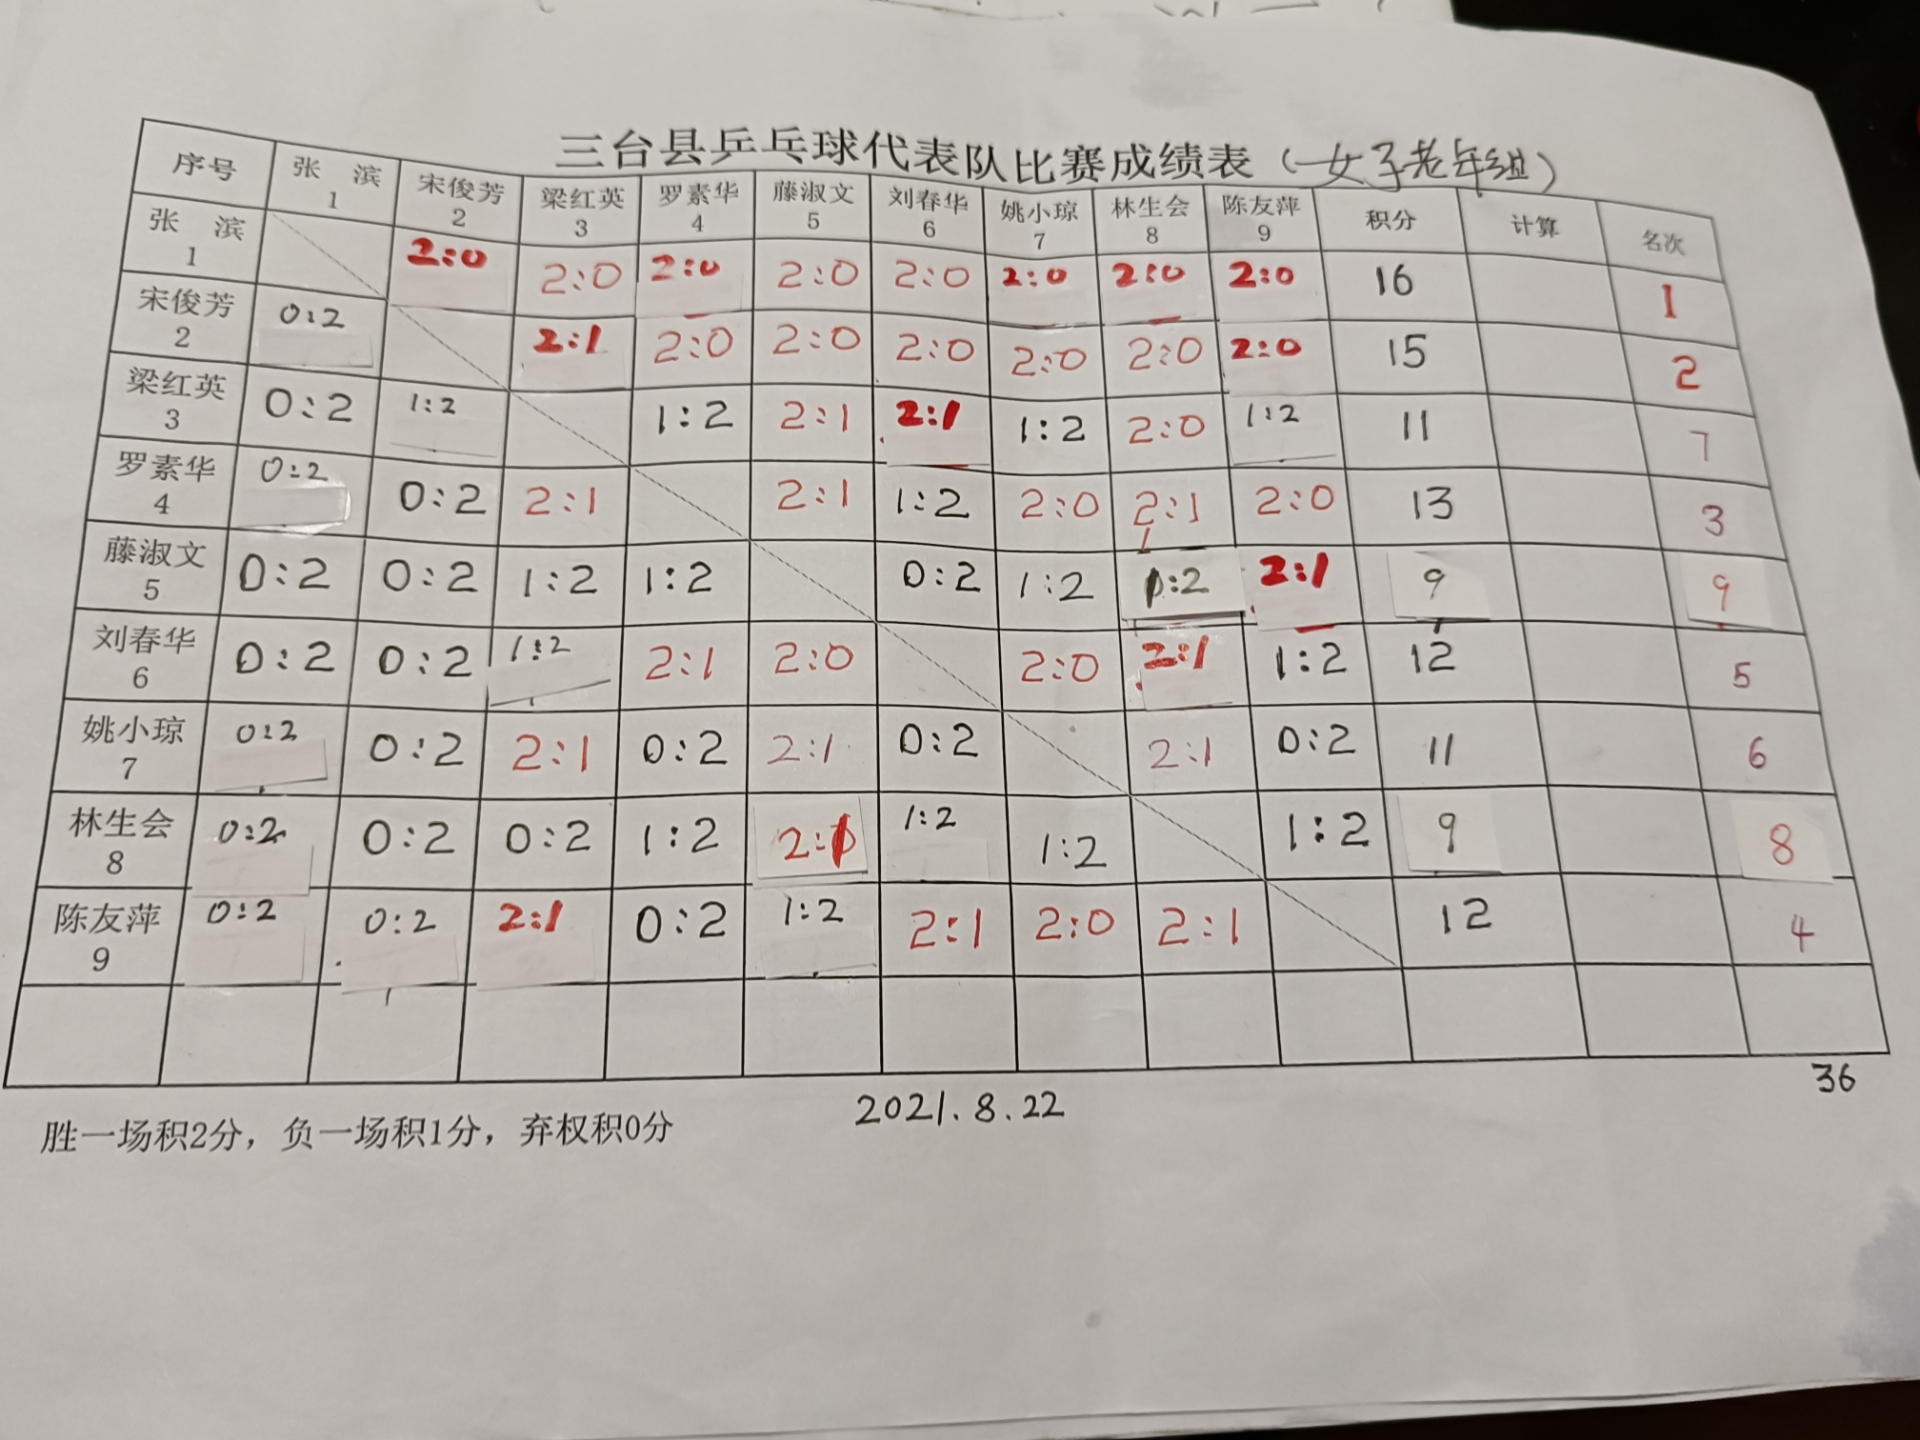 三台县乒乓球代表队比赛成绩表（女子老年组）
序号 张 滨 1 宋俊芳 2 梁红英 3 罗素华 4 藤淑文 5 刘春华 6 姚小琼 7 林生会 8 陈友萍 9 积分 计算 名次
张 滨 1 2:0 2:0 2:0 2:0 2:0 2:0 2:0 2:0 16 1
宋俊芳 2 0:2 2:1 2:0 2:0 2:0 2:0 2:0 2:0 15 2
梁红英 3 0:2 1:2 1:2 2:1 2:1 1:2 2:0 1:2 11 7
罗素华 4 0:2 0:2 2:1 2:1 1:2 2:0 2:1 2:0 13 3
藤淑文 5 0:2 0:2 1:2 1:2 0:2 1:2 1:2 2:1 9 9
刘春华 6 0:2 0:2 1:2 2:1 2:0 2:0 2:1 1:2 12 5
姚小琼 7 0:2 0:2 2:1 0:2 2:1 0:2 2:1 0:2 11 6
林生会 8 0:2 0:2 0:2 1:2 2:1 1:2 1:2 1:2 9 8
陈友萍 9 0:2 0:2 2:1 0:2 1:2 2:1 2:0 2:1 12 4
36
胜一场积2分，负一场积1分，弃权积0分
2021.8.22